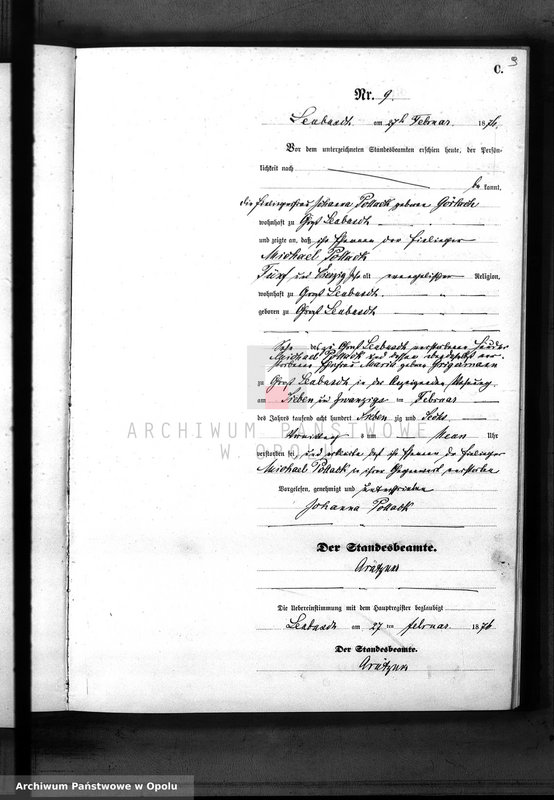 C. 9
Nr. 9.
Leubusch am 27ten Februar 1876.
Vor dem unterzeichneten Standesbeamten erschien heute, der Persön-
lichkeit nach
be kannt,
die Einliegerfrau Johanna Pollack geborene Görlach
wohnhaft zu Groß Leubusch
und zeigte an, daß ihr Ehemann der Einlieger
Michael Pollack
Fünf und Jahre alt evangelischer Religion,
wohnhaft zu Groß Leubusch
geboren zu Groß Leubusch
Sohn des zu Groß Leubusch verstorbenen Häusler
Michael Pollack und dessen ebendaselbst ver-
storbenen Ehefrau Maria geborne
zu Groß Leubusch in der Wohnung
am Sieben und zwanzigsten Februar
des Jahrs tausend acht hundert Sieben zig und Sechs
Vormittag s um Neun Uhr
verstorben sei, und erklärte daß ihr Ehemann der Einlieger
Michael Pollack in ihrer Gegenwart verstorben
Vorgelesen, genehmigt und unterschrieben
Johanna Pollack
Der Standesbeamte.
Die Uebereinstimmung mit dem Hauptregister beglaubigt
Leubusch am 27 ten Februar 1876
Der Standesbeamte.
ARCHIWUM PAŃSTWOWE
W OPOLU
Archiwum Państwowe w Opolu